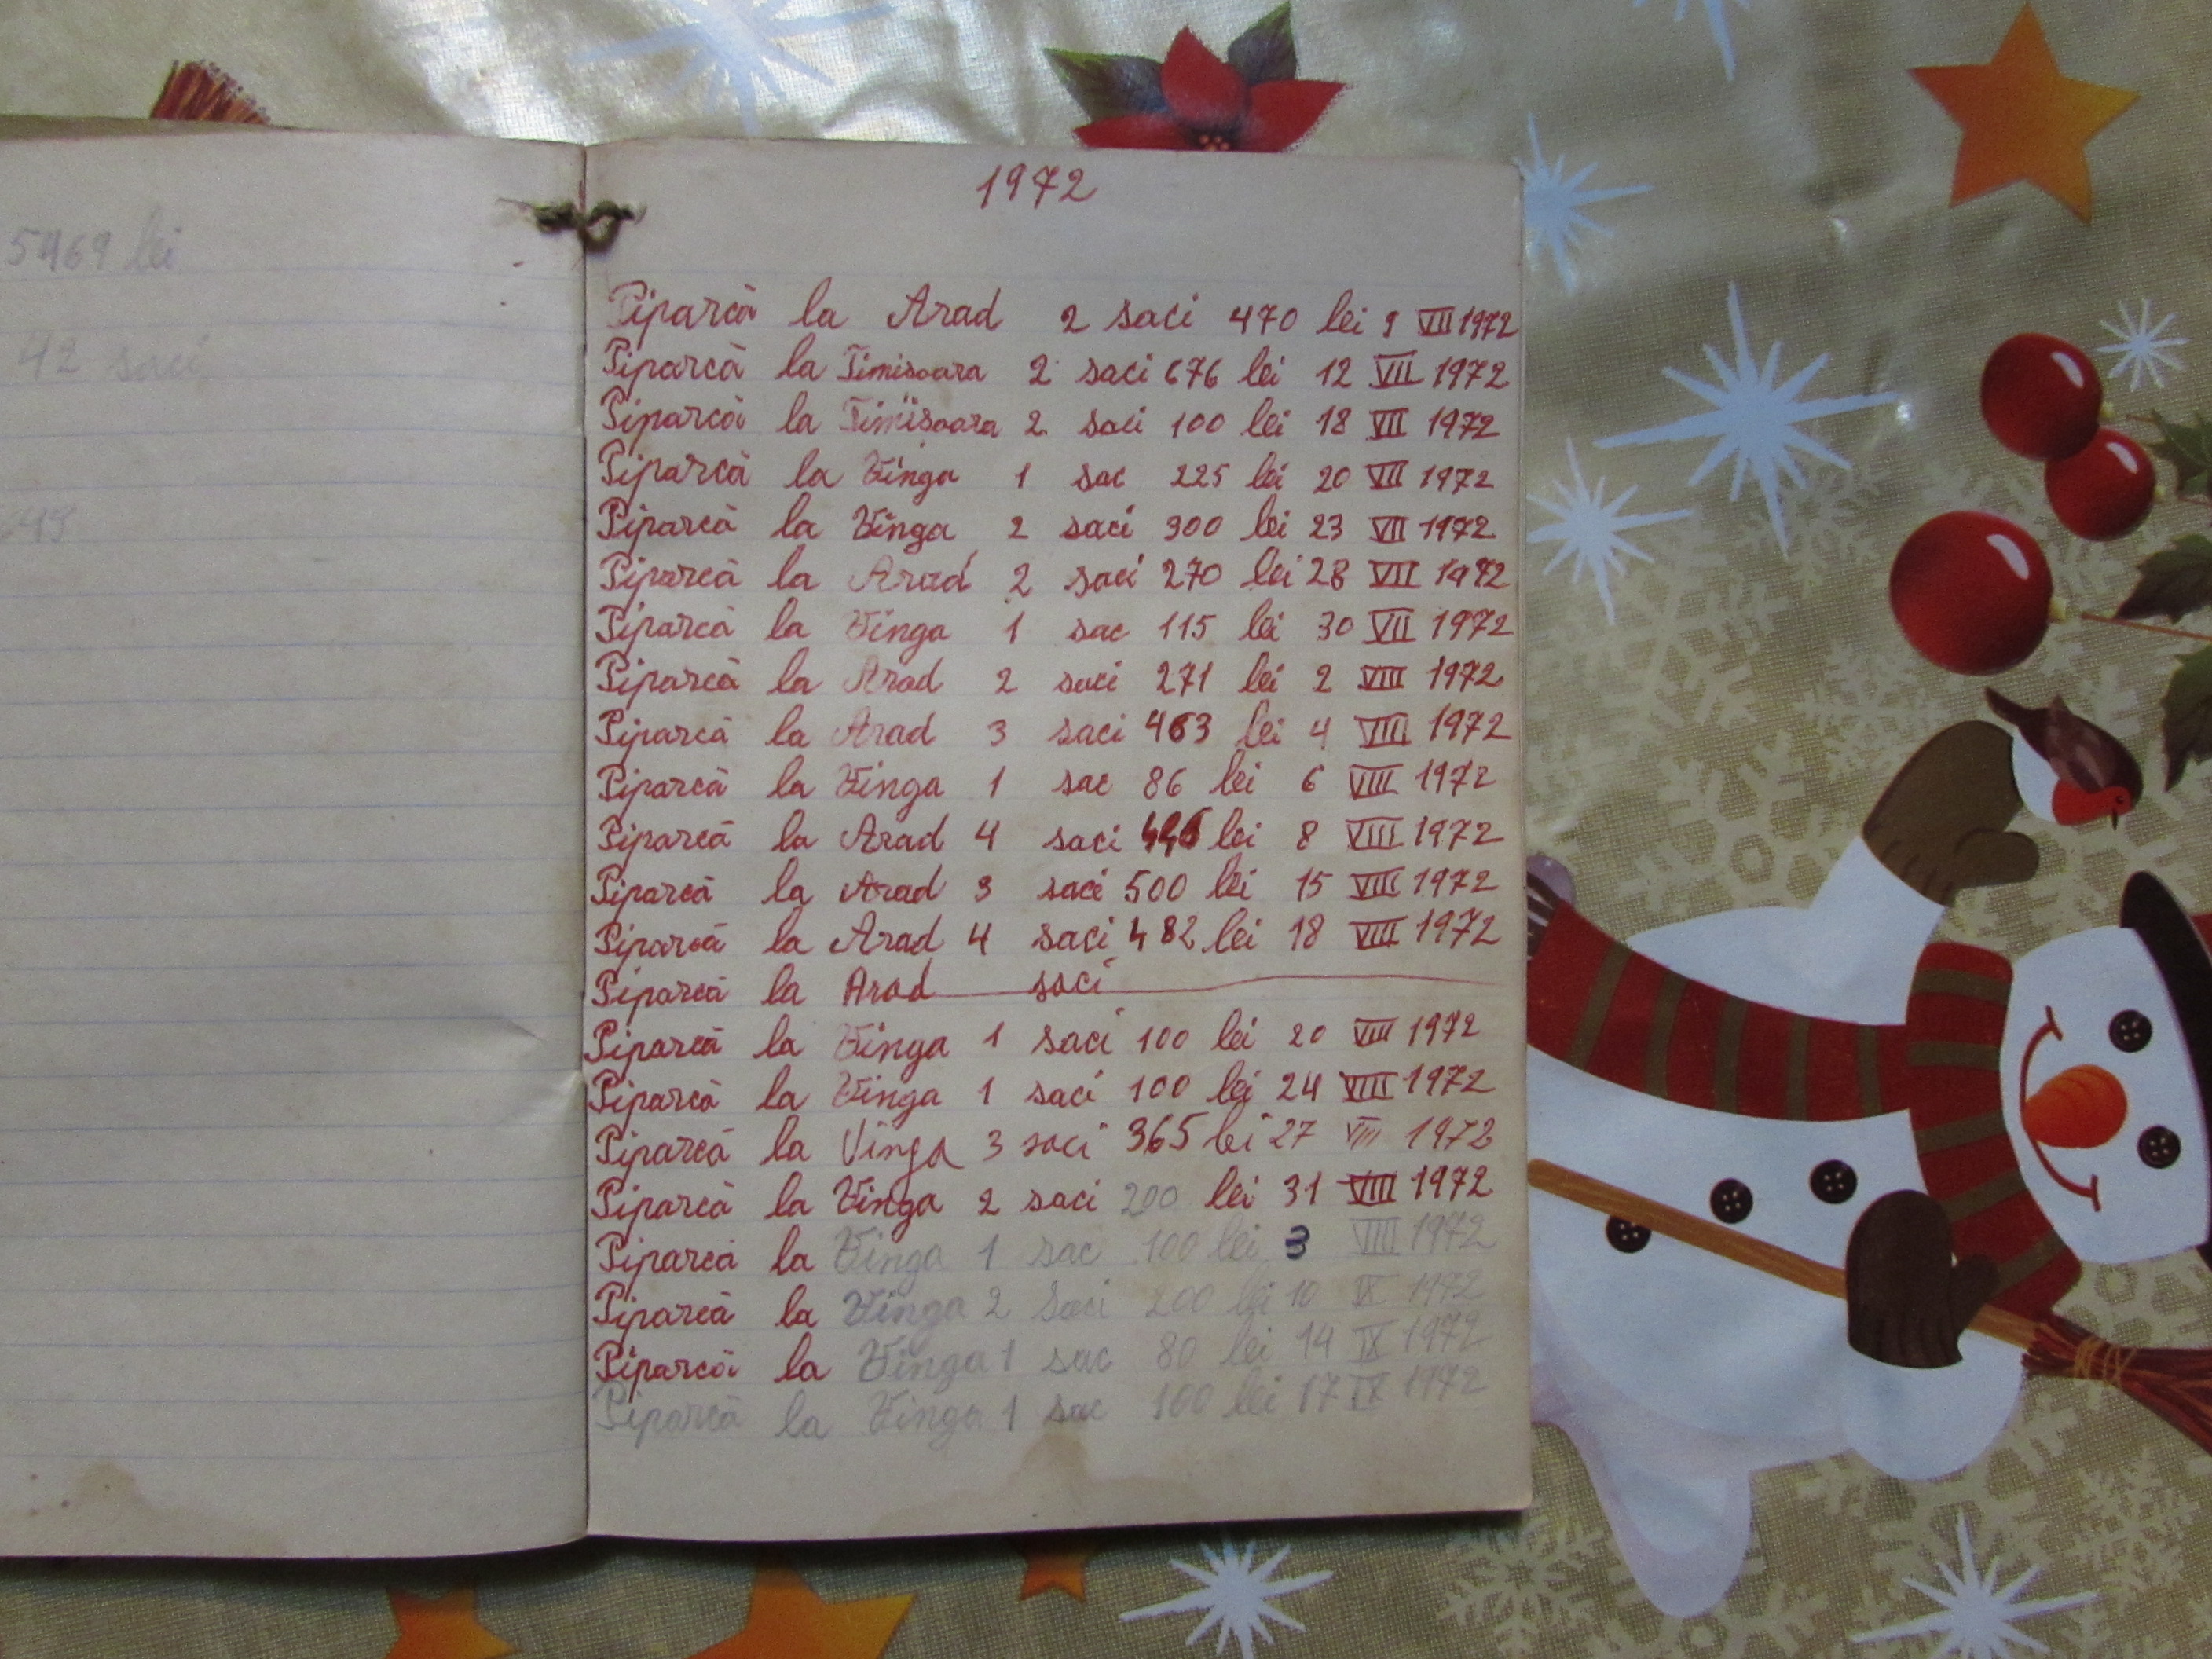 5469 lei
42 saci
1972
Piparcă la Arad 2 saci 470 lei 9 VII 1972
Piparcă la Timisoara 2 saci 676 lei 12 VII 1972
Piparcă la Timisoara 2 saci 100 lei 18 VII 1972
Piparcă la Vinga 1 sac 225 lei 20 VII 1972
Piparcă la Vinga 2 saci 300 lei 23 VII 1972
Piparcă la Arad 2 saci 270 lei 28 VII 1972
Piparcă la Vinga 1 sac 115 lei 30 VII 1972
Piparcă la Arad 2 saci 271 lei 2 VIII 1972
Piparcă la Arad 3 saci 463 lei 4 VIII 1972
Piparcă la Vinga 1 sac 86 lei 6 VIII 1972
Piparcă la Arad 4 saci lei 8 VIII 1972
Piparcă la Arad 3 saci 500 lei 15 VIII 1972
Piparcă la Arad 4 saci 482 lei 18 VIII 1972
Piparcă la Arad saci
Piparcă la Vinga 1 saci 100 lei 20 VIII 1972
Piparcă la Vinga 1 saci 100 lei 24 VIII 1972
Piparcă la Vinga 3 saci 365 lei 27 VIII 1972
Piparcă la Vinga 2 saci 200 lei 31 VIII 1972
Piparcă la Vinga 1 sac 100 lei 3 VIII 1972
Piparcă la Vinga 2 saci 200 lei 10 IX 1972
Piparcă la Vinga 1 sac 80 lei 14 IX 1972
Piparcă la Vinga 1 sac 100 lei 17 IX 1972